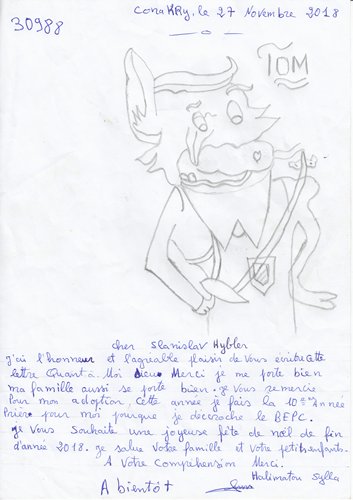 ConaKRy, le 27 Novembre 2018
30988
TOM
cher Stanislav Hybler
j'ai l'honneur et l'agreable plaisir de Vous ecrire Cette
lettre Quant à Moi Dieu Merci je me porte bien
ma famille aussi se porte bien. je Vous remercie
Pour mon adoption. Cette année je fais la 10ème Année
Prière pour moi pourque je decroche le BEPC.
je Vous Souhaite une joyeuse fête de nöel de fin
d'année 2018. je salue Votre famille et Votre petits enfants.
A Votre Comprehension Merci.
Halimatou Sylla
A bientôt